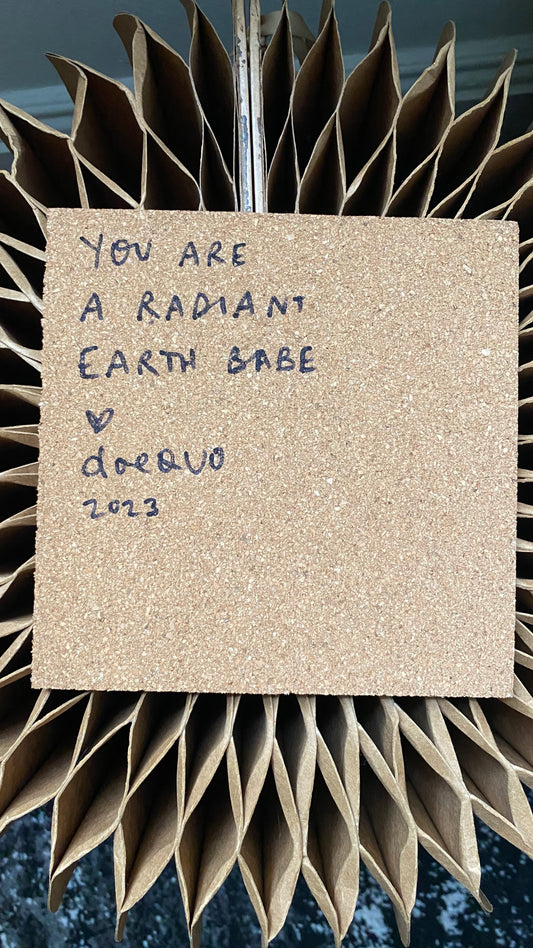 YOU ARE
A RADIANT
EARTH BABE
♡
draeQUO
2023